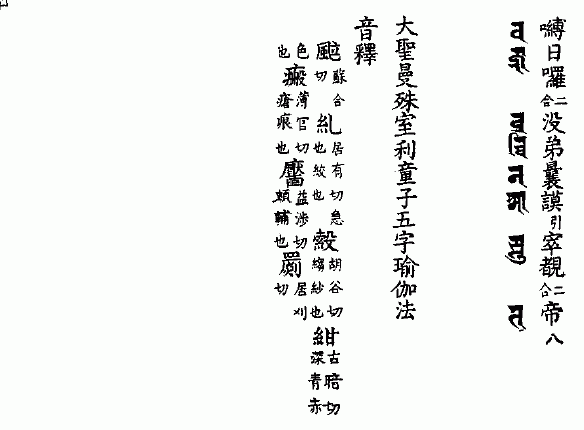 嚩日囉二合没弟曩謨引窣覩二合帝八
大聖曼殊室利童子五字瑜伽法
音釋
颯蘇合切糺居有切急也絞也縠胡谷切縐紗也紺古暗切深青赤
色也瘢薄官切瘡痕也靨益涉切頰輔也罽居刈切